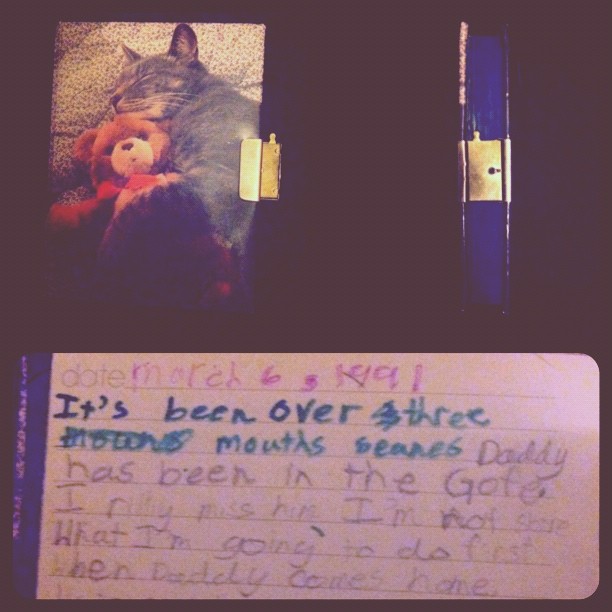 date march 6, 1991
It's been over three
mouths seanes Daddy
has been in the Gofe.
I rilly miss him I'm not shore
What I'm going to do first
when Daddy comes home.